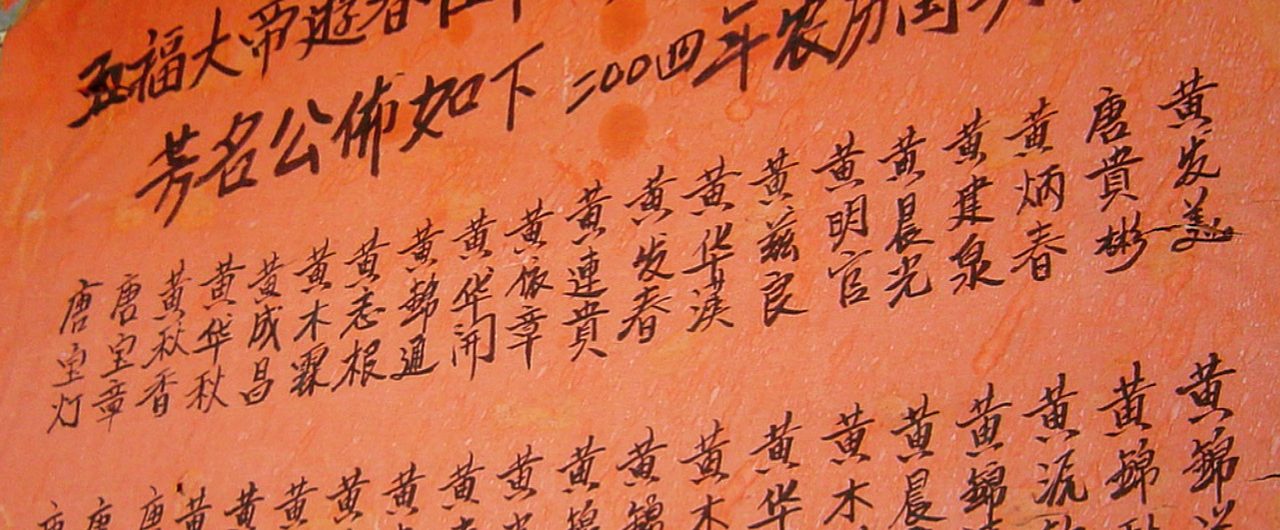 五福大帝遊春
芳名公佈如下 二00四年农历閏
黄发美
唐貴彬
黄炳春
黄建泉
黄晨光
黄明官
黄兹良
黄华淇
黄发春
黄連貴
黄依章
黄华開
黄錦通
黄志根
黄木霖
黄成昌
黄华秋
黄秋香
唐宝章
唐宝灯
黄錦
黄錦
黄流
黄錦
黄晨
黄木
黄华
黄木
黄錦
黄錦
黄
黄
黄
黄
黄
黄
黄
唐
唐
唐